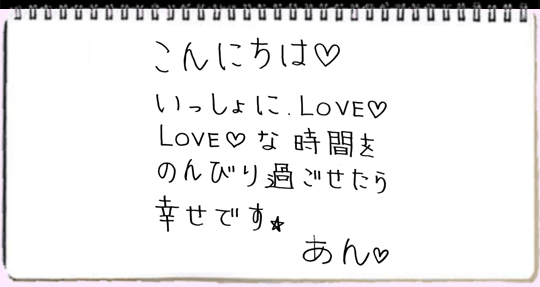 こんにちは♡
いっしょに.LOVE♡
LOVE♡な時間を
のんびり過ごせたら
幸せです☆
あん♡